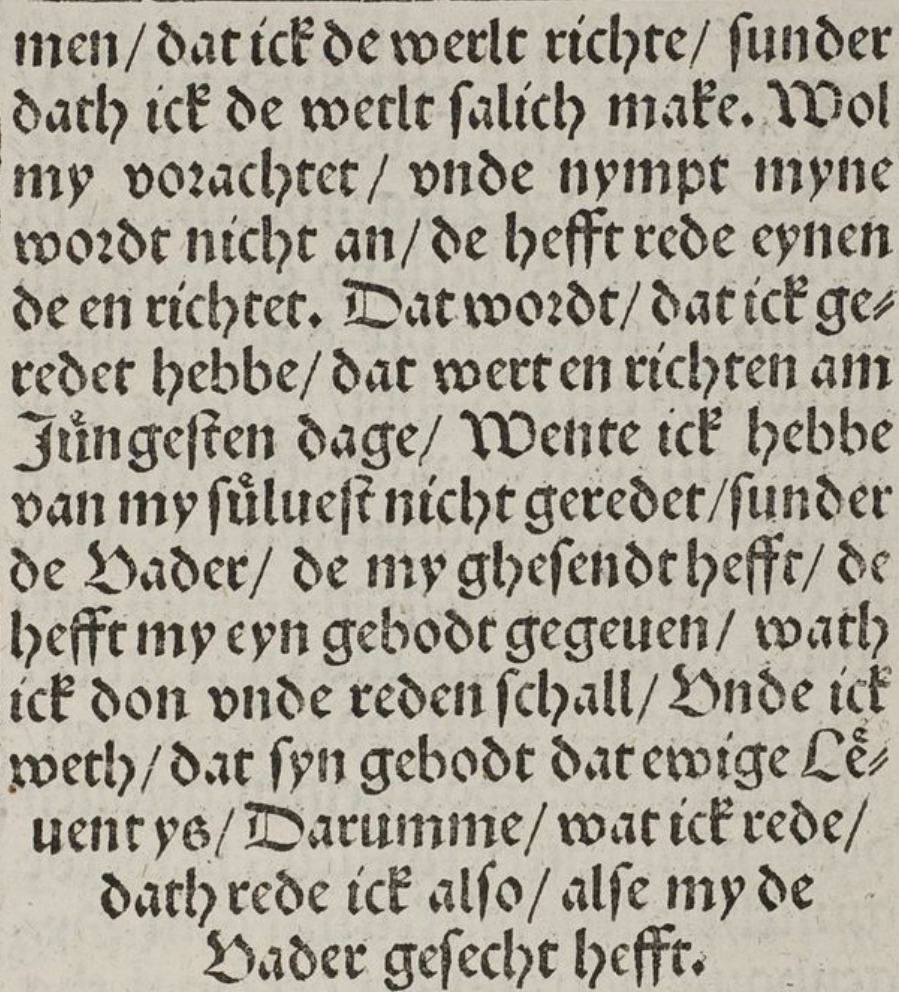 men/ dat ick de werlt richte/ sunder
dath ick de werlt salich make. Wol
my vorachtet/ vnde nympt myne
wordt nicht an/ de hefft rede eynen
de en richtet. Dat wordt/ dat ick ge⸗
redet hebbe/ dat wert en richten am
Jüngesten dage/ Wente ick hebbe
van my süluest nicht geredet/ sunder
de Vader/ de my ghesendt hefft/ de
hefft my eyn gebodt gegeuen/ wath
ick don vnde reden schall/ Vnde ick
weth/ dat syn gebodt dat ewige Leͤ⸗
uent ys/ Darumme/ wat ick rede/
dath rede ick also/ alse my de
Vader gesecht hefft.